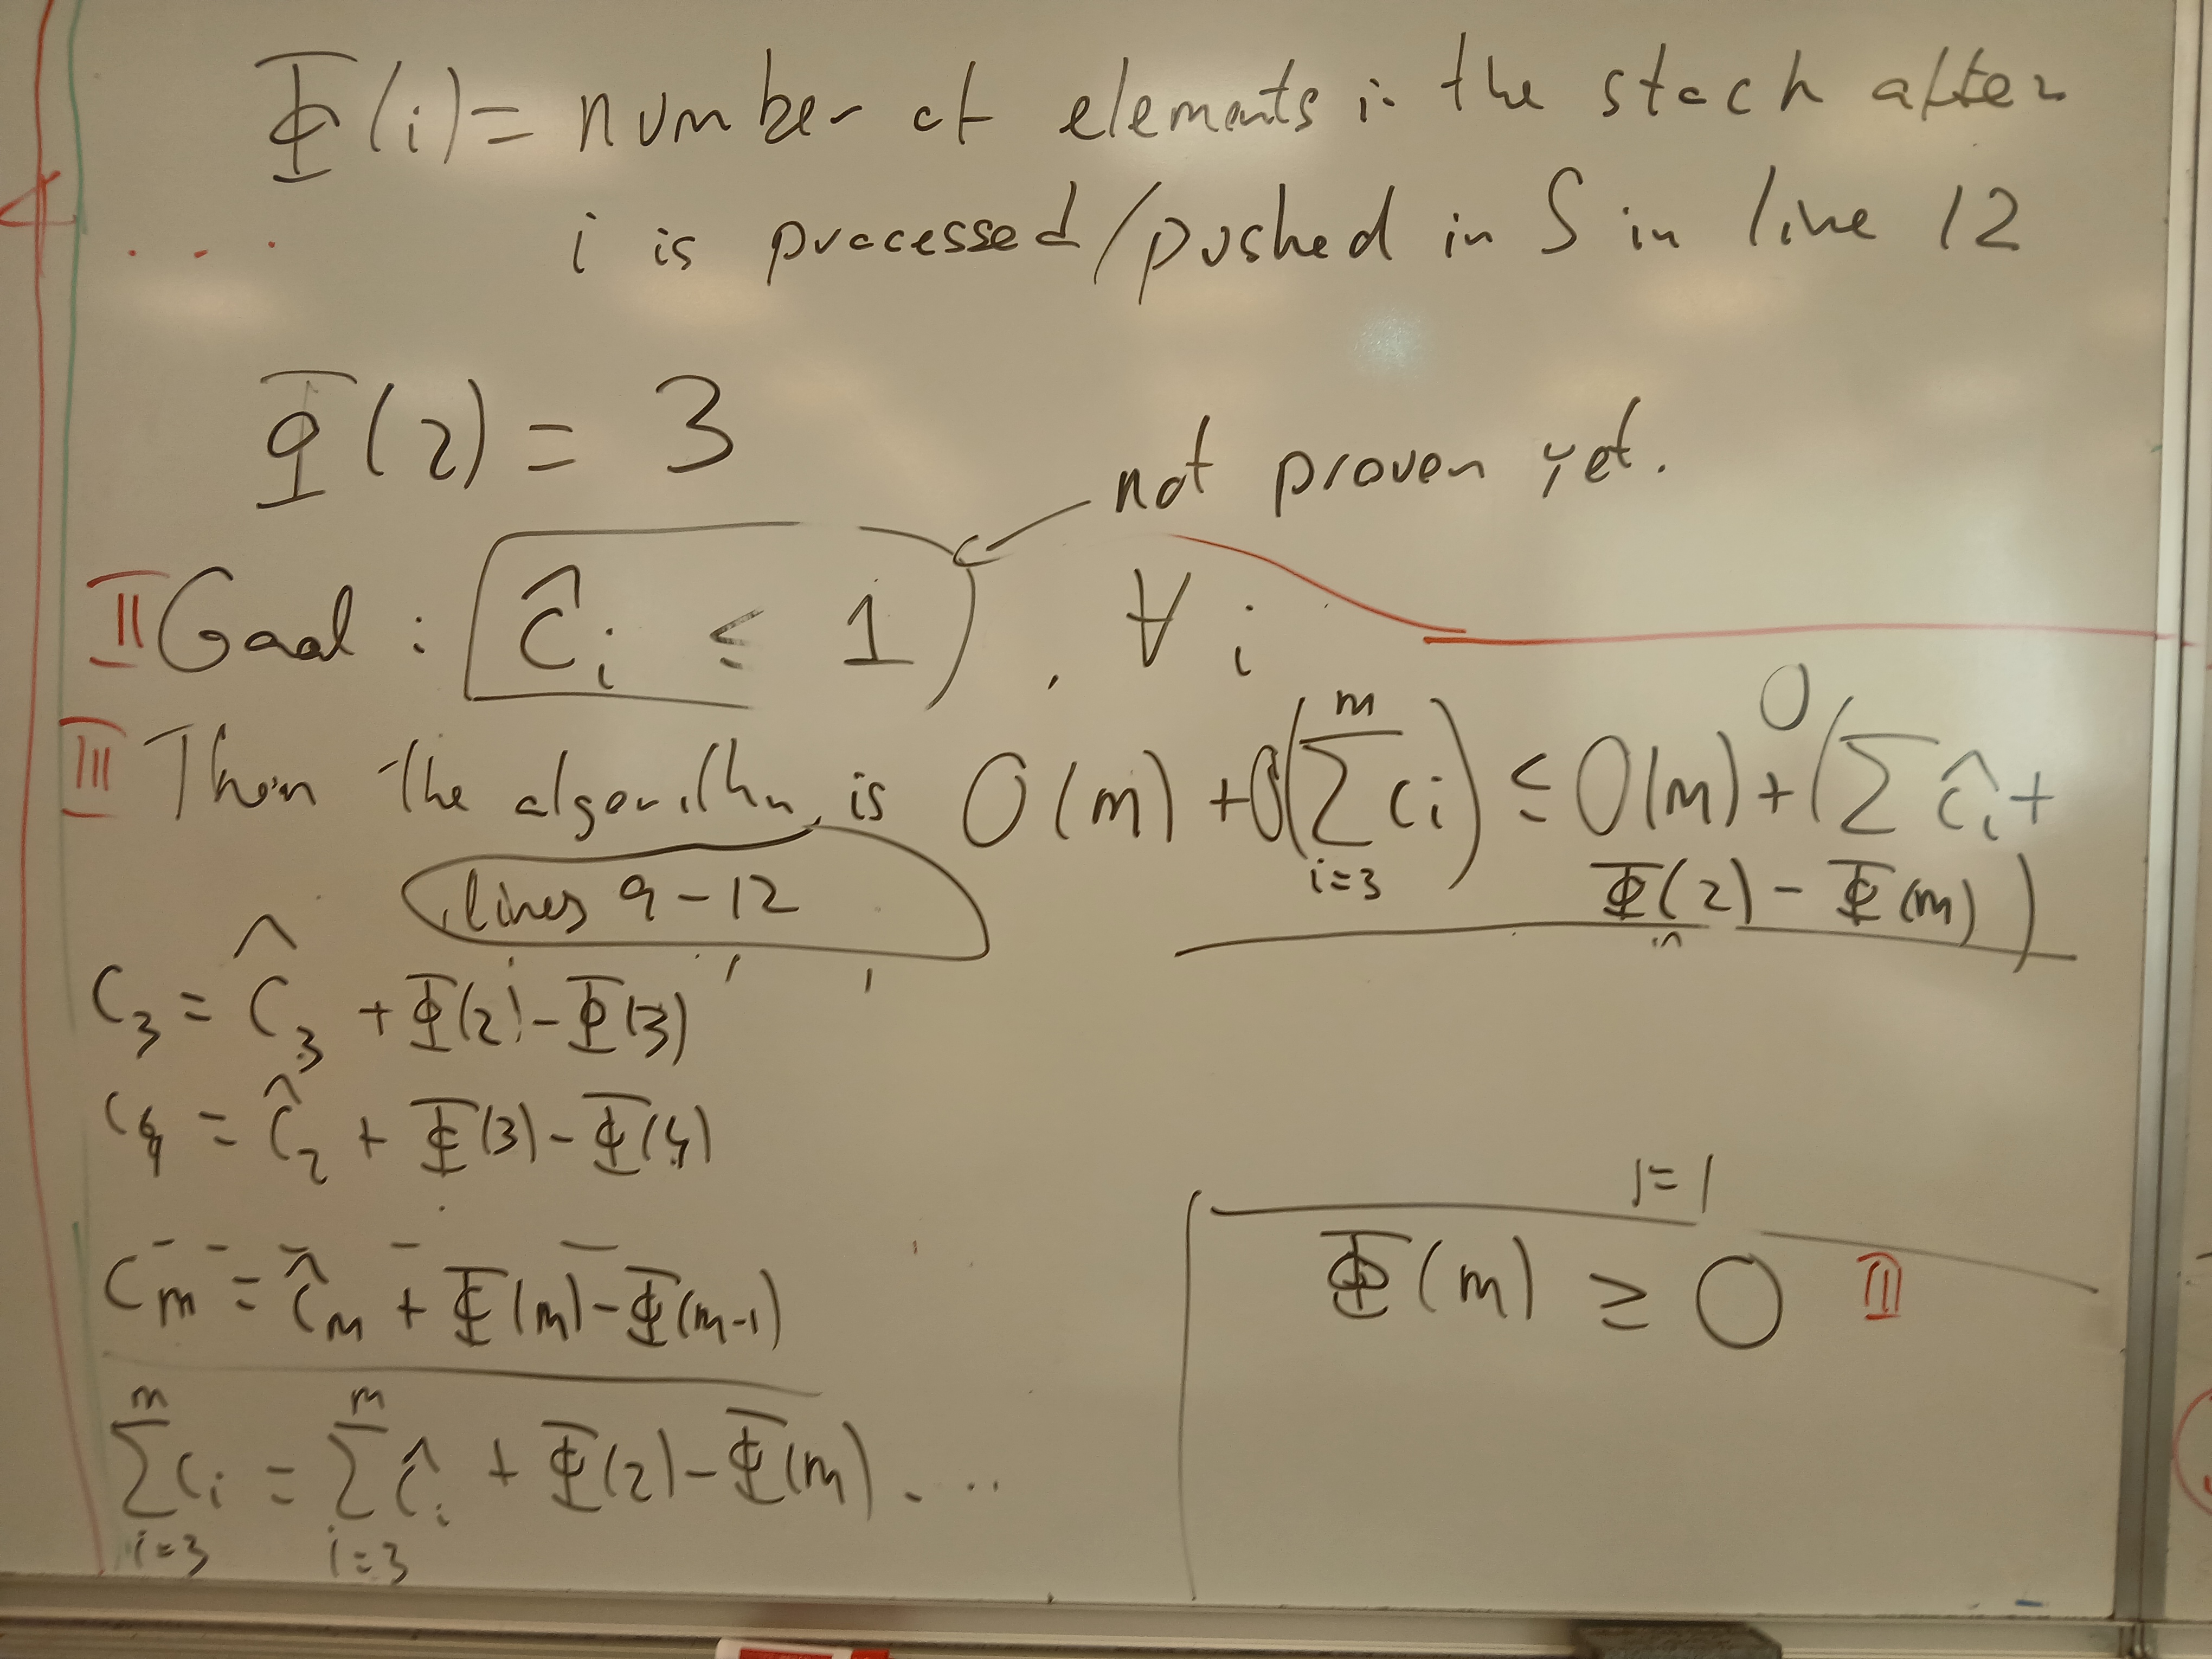 Φ(i) = number of elements in the stack after
i is processed/pushed in S in line 12
. . .
Φ(2) = 3
not proven yet.
II Goal : ĉ_i ≤ 1 , ∀ i
III Then the algorithm is O(m) + O(∑_{i=3}^{m} c_i) ≤ O(m) + O(∑ ĉ_i +
Φ(2) - Φ(m))
lines 9-12
c_3 = ĉ_3 + Φ(2) - Φ(3)
c_4 = ĉ_2 + Φ(3) - Φ(4)
c_m = ĉ_m + Φ(m) - Φ(m-1)
∑_{i=3}^{m} c_i = ∑_{i=3}^{m} ĉ_i + Φ(2) - Φ(m) . ...
i=1
Φ(m) ≥ 0 III